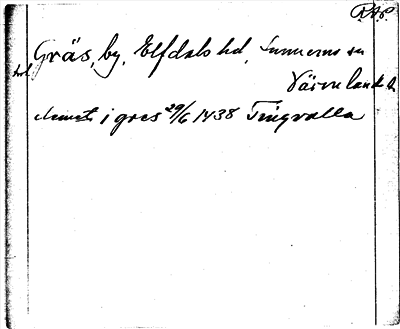 RAP
Gräs, by, Elfdals hd, Sunnemo sn
Värmland
i gres 29/6 1438 Tingvalla